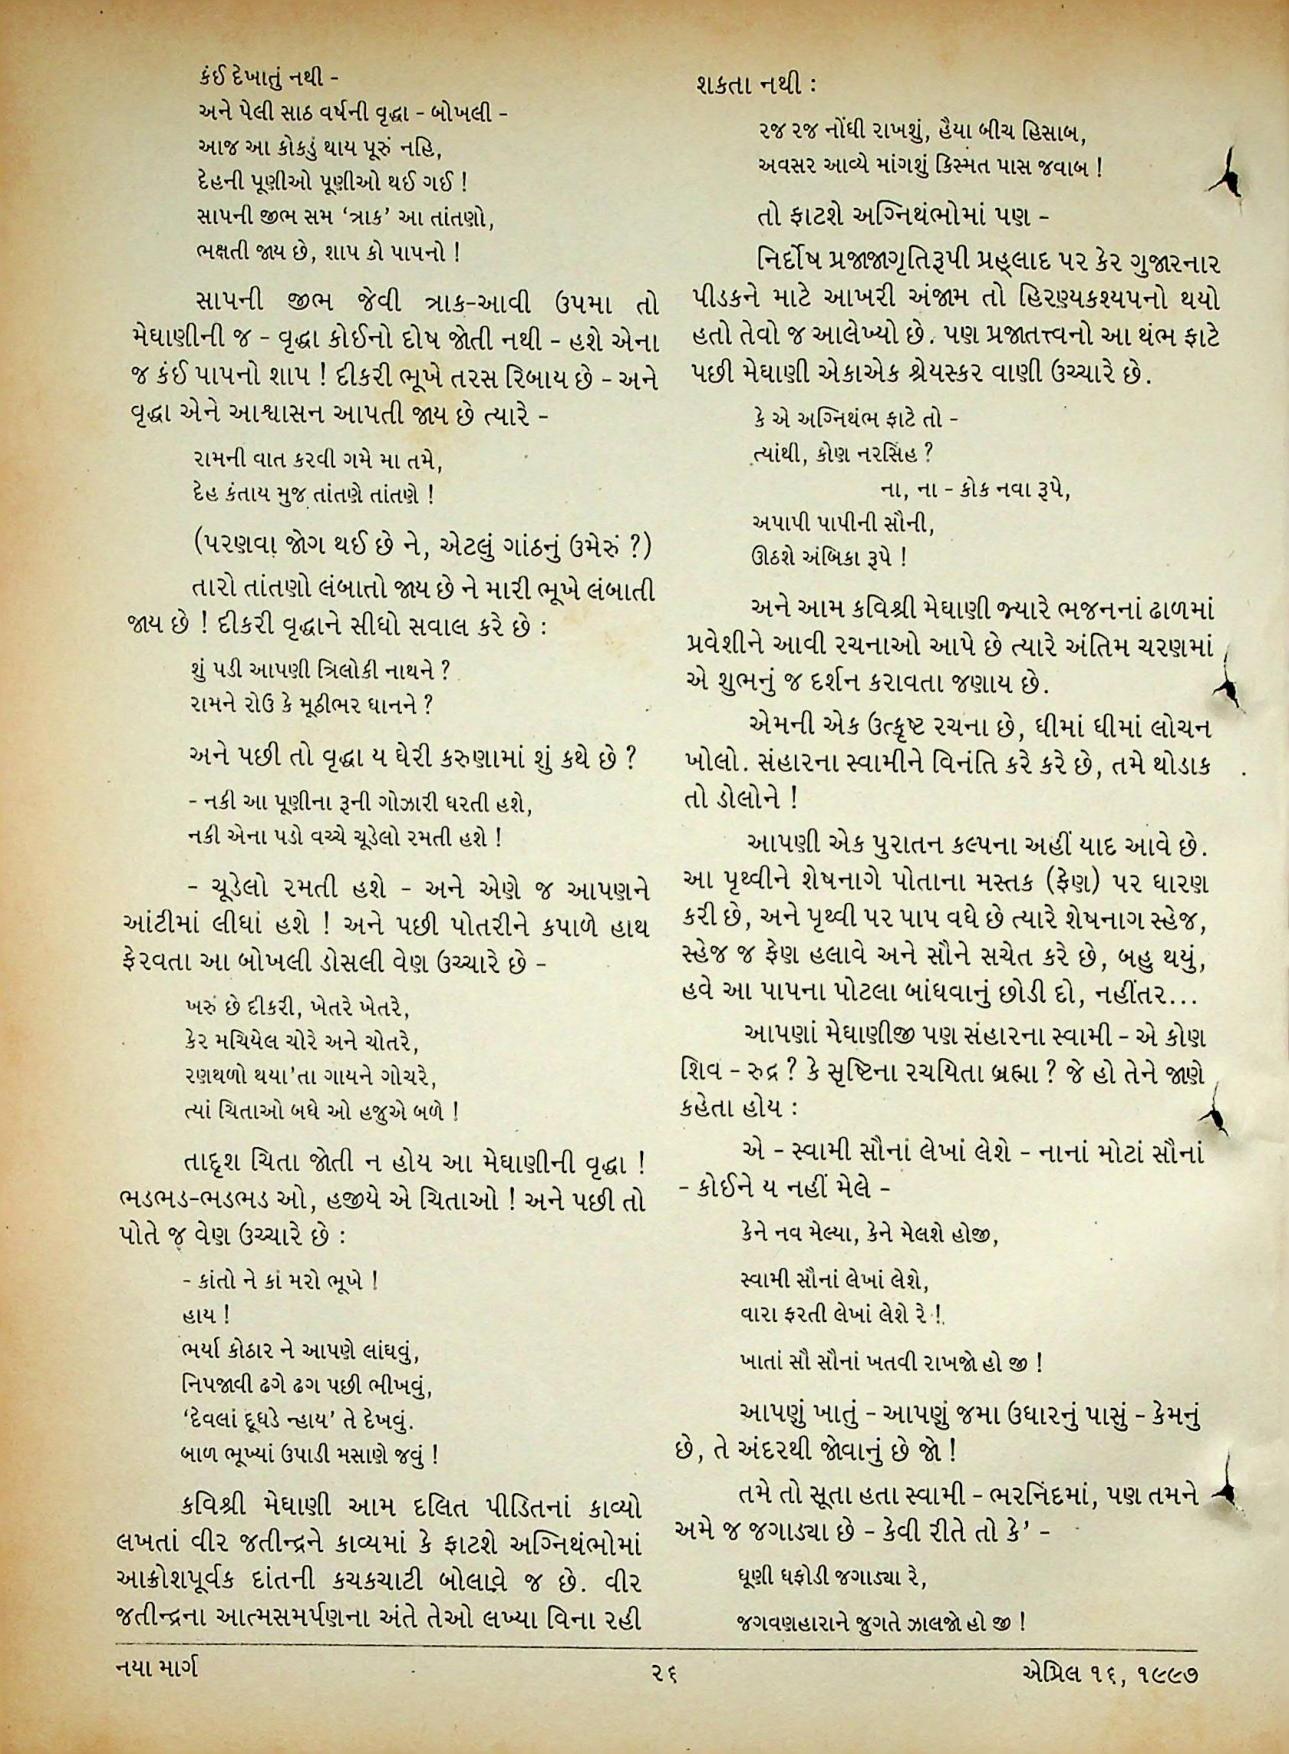 કંઈ દેખાતું નથી -
અને પેલી સાઠ વર્ષની વૃદ્ધા - બોખલી -
આજ આ કોકડું થાય પૂરું નહિ,
દેહની પૂણીઓ પૂણીઓ થઈ ગઈ !
સાપની જીભ સમ ‘ત્રાક’ આ તાંતણો,
ભક્ષતી જાય છે, શાપ કો પાપનો !
સાપની જીભ જેવી ત્રાક-આવી ઉપમા તો
મેઘાણીની જ - વૃદ્ધા કોઈનો દોષ જોતી નથી - હશે એના
જ કંઈ પાપનો શાપ ! દીકરી ભૂખે તરસ રિબાય છે - અને
વૃદ્ધા એને આશ્વાસન આપતી જાય છે ત્યારે -
રામની વાત કરવી ગમે મા તમે,
દેહ કંતાય મુજ તાંતણે તાંતણે !
(પરણવા જોગ થઈ છે ને, એટલું ગાંઠનું ઉમેરું ?)
તારો તાંતણો લંબાતો જાય છે ને મારી ભૂખે લંબાતી
જાય છે ! દીકરી વૃદ્ધાને સીધો સવાલ કરે છે :
શું પડી આપણી ત્રિલોકી નાથને ?
રામને રોઉ કે મૂઠીભર ધાનને ?
અને પછી તો વૃદ્ધા ય ઘેરી કરુણામાં શું કથે છે ?
- નકી આ પૂણીના રૂની ગોઝારી ધરતી હશે,
નકી એના પડો વચ્ચે ચૂડેલો રમતી હશે !
- ચૂડેલો રમતી હશે - અને એણે જ આપણને
આંટીમાં લીધાં હશે ! અને પછી પોતરીને કપાળે હાથ
ફેરવતા આ બોખલી ડોસલી વેણ ઉચ્ચારે છે -
ખરું છે દીકરી, ખેતરે ખેતરે,
કેર મચિયેલ ચોરે અને ચોતરે,
રણથળો થયા’તા ગાયને ગોચરે,
ત્યાં ચિતાઓ બધે ઓ હજુએ બળે !
તાદૃશ ચિતા જોતી ન હોય આ મેઘાણીની વૃદ્ધા !
ભડભડ-ભડભડ ઓ, હજીયે એ ચિતાઓ ! અને પછી તો
પોતે જ વેણ ઉચ્ચારે છે :
- કાંતો ને કાં મરો ભૂખે !
હાય !
ભર્યા કોઠાર ને આપણે લાંઘવું,
નિપજાવી ઢગે ઢગ પછી ભીખવું,
‘દેવલાં દૂધડે ન્હાય’ તે દેખવું.
બાળ ભૂખ્યાં ઉપાડી મસાણે જવું !
કવિશ્રી મેઘાણી આમ દલિત પીડિતનાં કાવ્યો
લખતાં વીર જતીન્દ્રને કાવ્યમાં કે ફાટશે અગ્નિથંભોમાં
આક્રોશપૂર્વક દાંતની કચકચાટી બોલાવે જ છે. વીર
જતીન્દ્રના આત્મસમર્પણના અંતે તેઓ લખ્યા વિના રહી
શકતા નથી :
રજ રજ નોંધી રાખશું, હૈયા બીચ હિસાબ,
અવસર આવ્યે માંગશું કિસ્મત પાસ જવાબ !
તો ફાટશે અગ્નિથંભોમાં પણ -
નિર્દોષ પ્રજાજાગૃતિરૂપી પ્રહ્લાદ પર કેર ગુજારનાર
પીડકને માટે આખરી અંજામ તો હિરણ્યકશ્યપનો થયો
હતો તેવો જ આલેખ્યો છે. પણ પ્રજાતત્ત્વનો આ થંભ ફાટે
પછી મેઘાણી એકાએક શ્રેયસ્કર વાણી ઉચ્ચારે છે.
કે એ અગ્નિથંભ ફાટે તો -
ત્યાંથી, કોણ નરસિંહ ?
ના, ના - કોક નવા રૂપે,
અપાપી પાપીની સૌની,
ઊઠશે અંબિકા રૂપે !
અને આમ કવિશ્રી મેઘાણી જ્યારે ભજનનાં ઢાળમાં
પ્રવેશીને આવી રચનાઓ આપે છે ત્યારે અંતિમ ચરણમાં
એ શુભનું જ દર્શન કરાવતા જણાય છે.
એમની એક ઉત્કૃષ્ટ રચના છે, ધીમાં ધીમાં લોચન
ખોલો. સંહારના સ્વામીને વિનંતિ કરે કરે છે, તમે થોડાક
તો ડોલોને !
આપણી એક પુરાતન કલ્પના અહીં યાદ આવે છે.
આ પૃથ્વીને શેષનાગે પોતાના મસ્તક (ફેણ) પર ધારણ
કરી છે, અને પૃથ્વી પર પાપ વધે છે ત્યારે શેષનાગ સ્હેજ,
સ્હેજ જ ફેણ હલાવે અને સૌને સચેત કરે છે, બહુ થયું,
હવે આ પાપના પોટલા બાંધવાનું છોડી દો, નહીંતર...
આપણાં મેઘાણીજી પણ સંહારના સ્વામી - એ કોણ
શિવ - રુદ્ર ? કે સૃષ્ટિના રચયિતા બ્રહ્મા ? જે હો તેને જાણે
કહેતા હોય :
એ - સ્વામી સૌનાં લેખાં લેશે - નાનાં મોટાં સૌનાં
- કોઈને ય નહીં મેલે -
કેને નવ મેલ્યા, કેને મેલશે હોજી,
સ્વામી સૌનાં લેખાં લેશે,
વારા ફરતી લેખાં લેશે રે !
ખાતાં સૌ સૌનાં ખતવી રાખજો હો જી !
આપણું ખાતું - આપણું જમા ઉધારનું પાસું - કેમનું
છે, તે અંદરથી જોવાનું છે જો !
તમે તો સૂતા હતા સ્વામી - ભરનિંદમાં, પણ તમને
અમે જ જગાડ્યા છે - કેવી રીતે તો કે’ -
ધૂણી ધફોડી જગાડ્યા રે,
જગવણહારાને જુગતે ઝાલજો હો જી !
નયા માર્ગ
૨૬
એપ્રિલ ૧૬, ૧૯૯૭